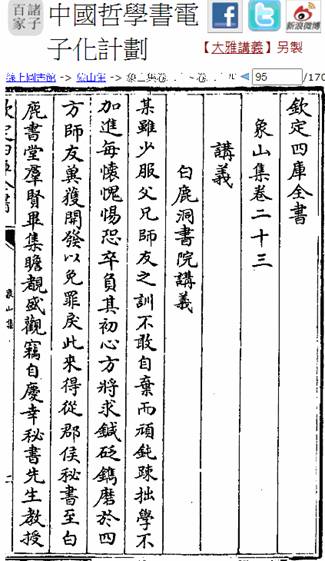 諸子
百家
中國哲學書電
子化計劃
新浪微博
【大雅講義】另製
線上圖書館 -> 象山集 ->
95
/170
欽定四庫全書
象山集卷二十三
講義
白鹿洞書院講義
某雖少服父兄師友之訓不敢自棄而頑鈍踈拙學不
加進每懷愧惕恐卒負其初心方將求鍼砭鐫磨於四
方師友冀獲開發以免罪戾此來得從郡侯秘書至白
鹿書堂羣賢畢集瞻覩盛觀竊自慶幸秘書先生教授
欽定四庫全書
象山集